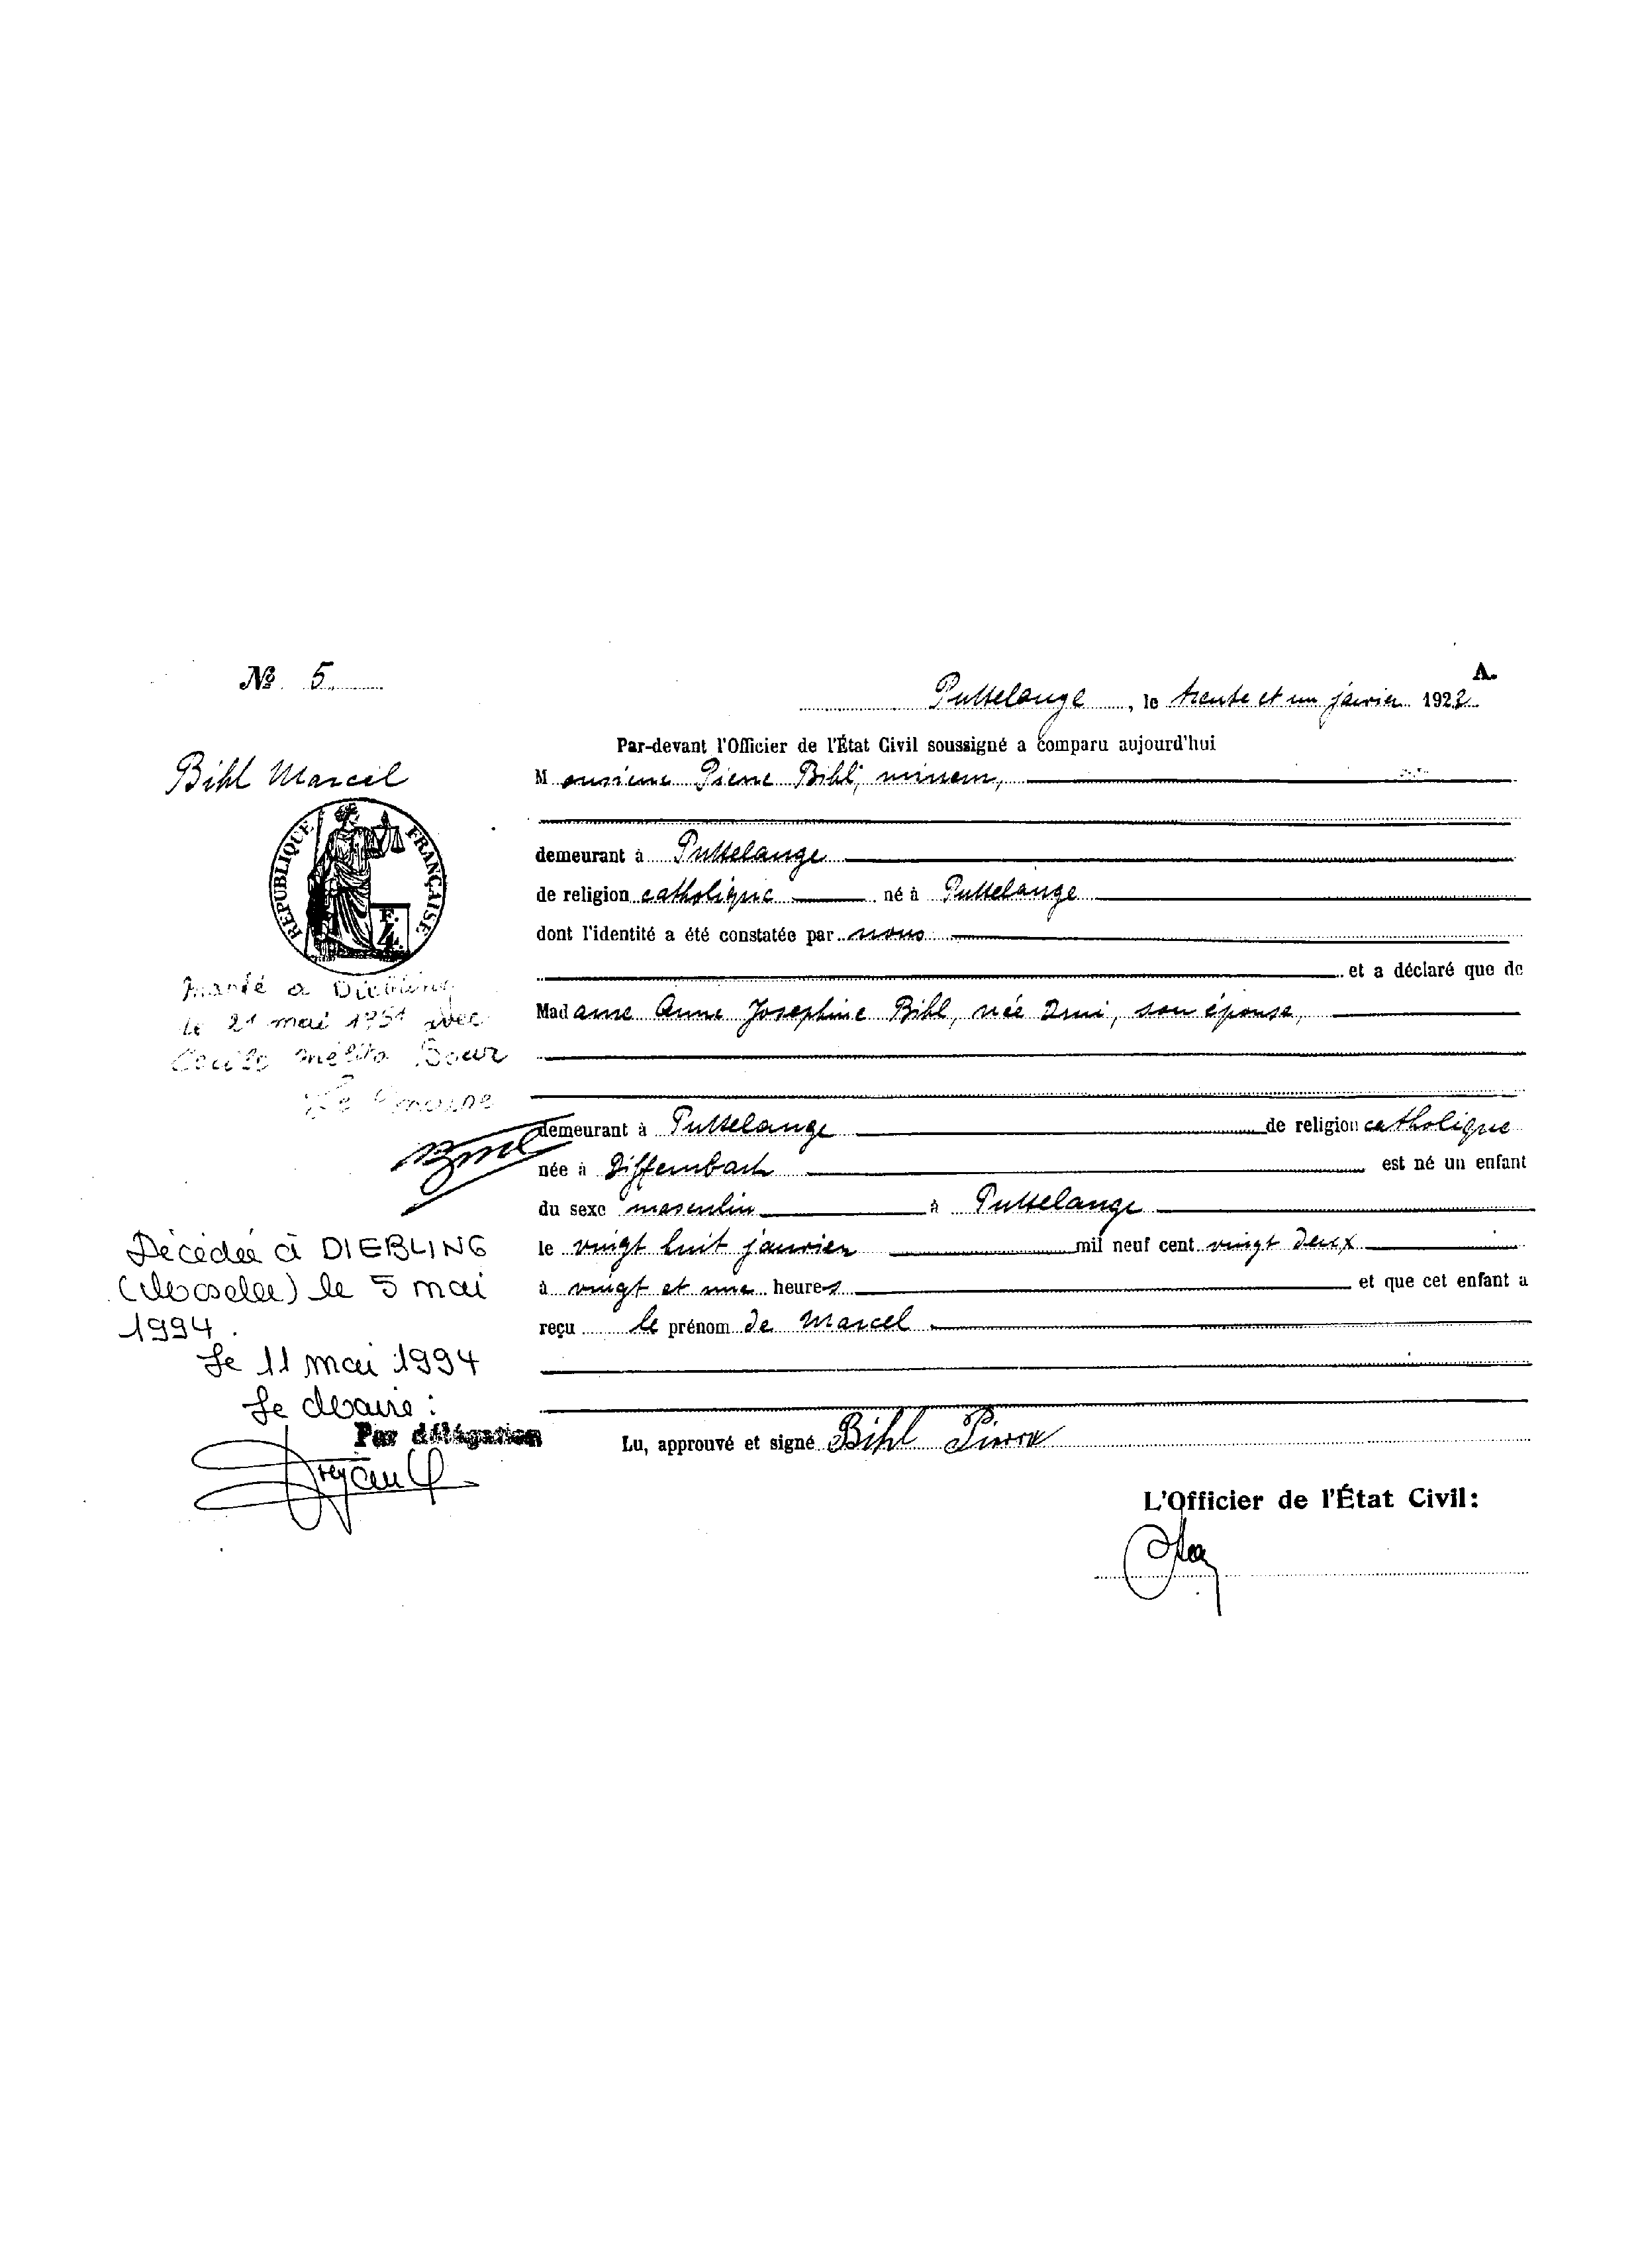 Nº 5
A.
Puttelange, le trente et un janvier 1922
Par-devant l'Officier de l'État Civil soussigné a comparu aujourd'hui
Bihl Marcel
Monsieur Pierre Bihl, mineur,
RÉPUBLIQUE FRANÇAISE
F.
4
demeurant à Puttelange
de religion catholique né à Puttelange
dont l'identité a été constatée par nous
et a déclaré que de
Madame Anne Josephine Bihl, née, son épouse,
marié à Diebling
le 21 mai 1951 avec
Cécile Mélita Bour
Le maire
demeurant à Puttelange de religion catholique
née à Diffembach est né un enfant
du sexe masculin à Puttelange
le vingt huit janvier mil neuf cent vingt deux
à vingt et une heures et que cet enfant a
reçu le prénom de Marcel
Décédée à DIEBLING
(Moselle) le 5 mai
1994.
Le 11 mai 1994
Le Maire :
Par délégation
Lu, approuvé et signé Bihl Pierre
L'Officier de l'État Civil: